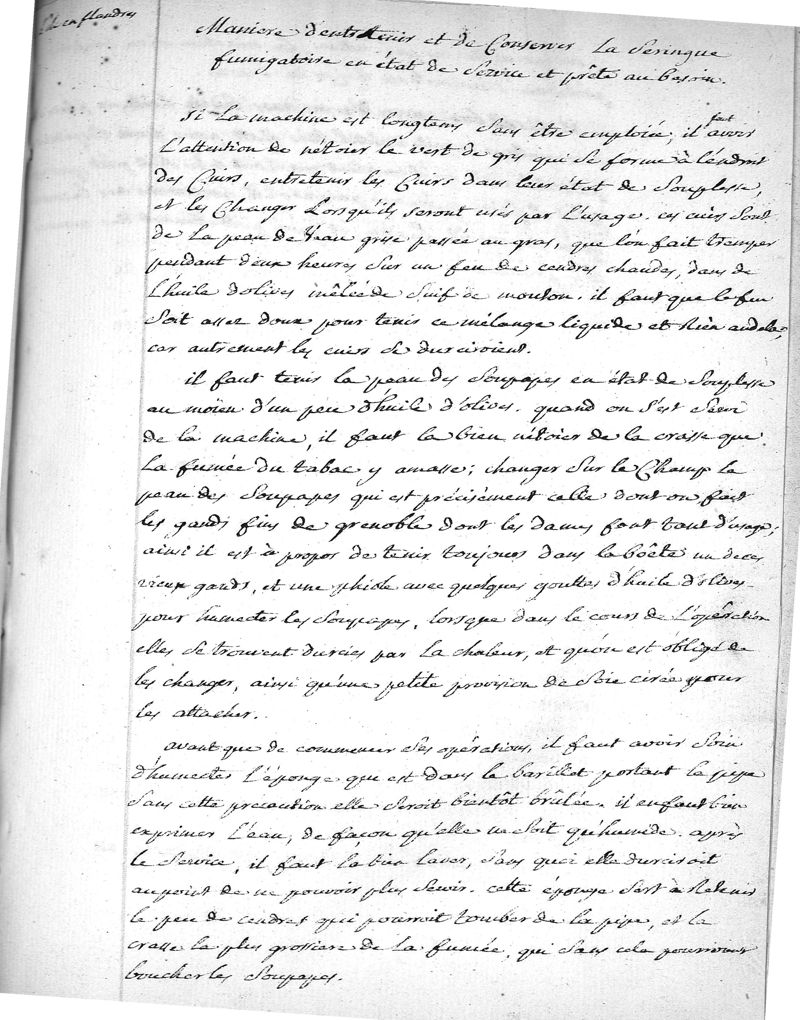 en flandres
Maniere d'entretenir et de Conserver La Seringue
fumigatoire en état de Service et prête au besoin.
si La machine est longtems Sans être emploiée, il faut avoir
L'attention de nétoier le vert de gris qui se forme à l'endroit
des Cuirs, entretenir les Cuirs dans leur état de Souplesse,
et les Changer Lorsqu'ils seront usés par L'usage. ces cuirs Sont
de La peau de Veau grise passée au gras, que l'on fait tremper
pendant deux heures Sur un feu de cendres chaudes, dans de
L'huile d'olives mêlée de Suif de mouton. il faut que le feu
Soit assez doux pour tenir ce mélange liquide et Rien au dela,
car autrement les cuirs Se durciroient.
il faut tenir La peau des Soupapes en état de Souplesse
au moïen d'un peu d'huile d'olives. quand on S'est Servi
de la machine, il faut la bien nétoier de la crasse que
La fumée du tabac y amasse; changer Sur le Champ la
peau des Soupapes qui est précisément celle dont on fait
les gands fins de grenoble dont les dames font tant d'usage;
ainsi il est à propos de tenir toujours dans la boëte un de ces
vieux gands, et une phiole avec quelques gouttes d'huile d'olives
pour humecter les Soupapes, lorsque dans le cours de L'opération
elles se trouvent durcies par La chaleur, et qu'on est obligé de
les changer, ainsi qu'une petite provision de Soie cirée pour
les attacher.
avant que de commencer Ses opérations, il faut avoir Soin
d'humecter L'éponge qui est dans le barillet portant la pipe
Sans cette precaution elle Seroit bientôt brûlée. il en faut bien
exprimer L'eau, de façon qu'elle ne Soit qu'humide. après
le Service, il faut la bien laver, Sans quoi elle durciroit
au point de ne pouvoir plus Servir. cette éponge Sert à Retenir
le peu de cendres qui pourroit tomber de la pipe, et la
crasse la plus grossiere de La fumée, qui Sans cela pourroient
boucher les Soupapes.